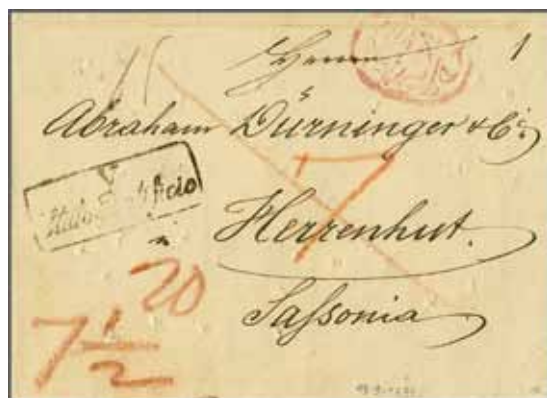 Herrn 1
Abraham Dürninger & Co.
7
Herrenhut.
20
Saſsonia
7 1/2